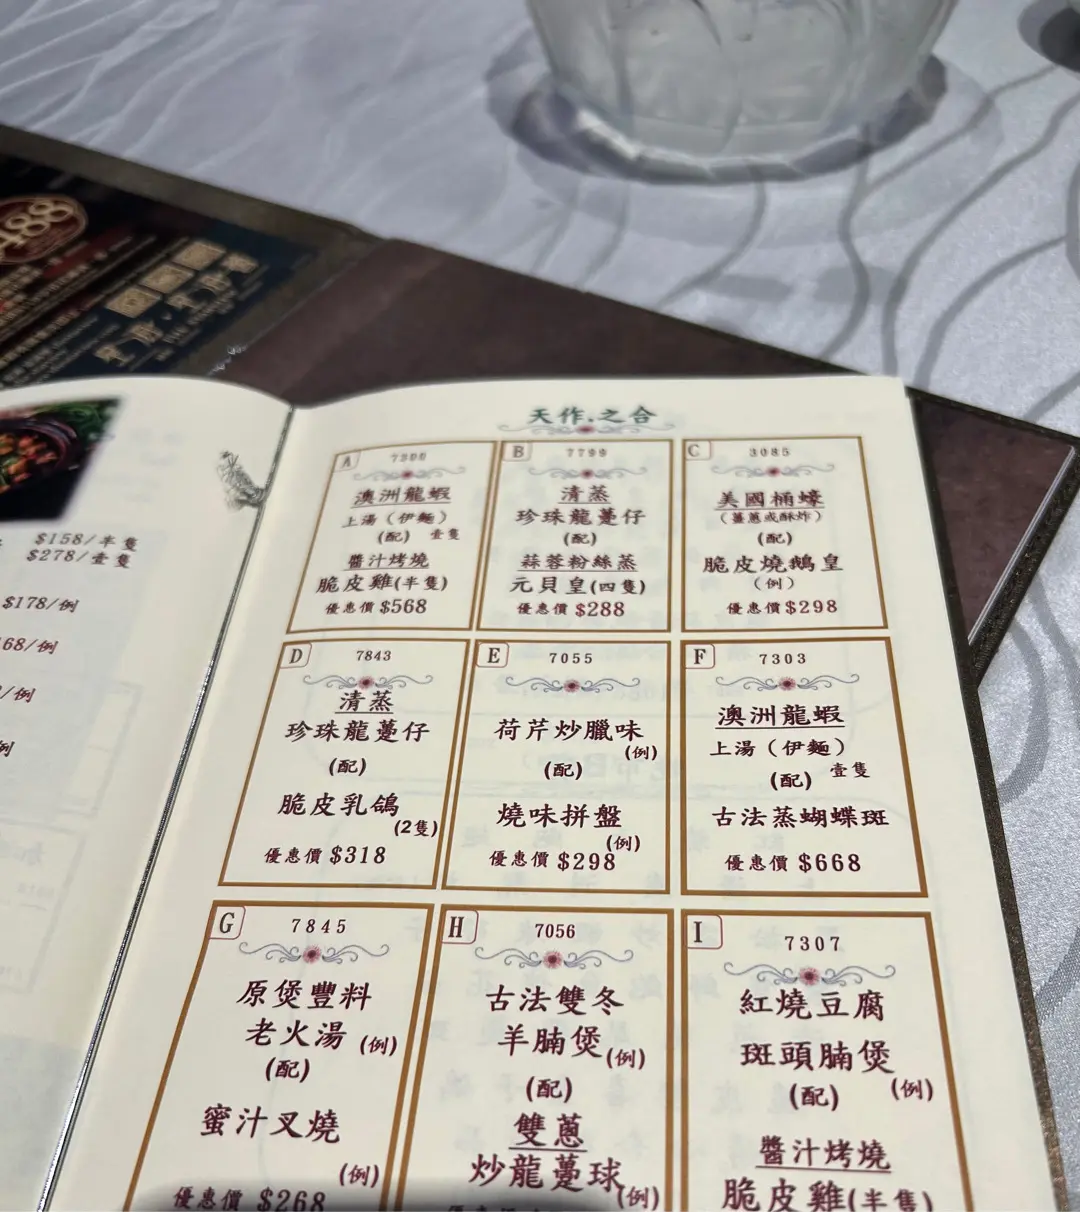 488
$158/半隻
$278/壹隻
$178/例
68/例
/例
例
天作之合
A
7300
澳洲龍蝦
上湯(伊麵)
(配) 壹隻
醬汁烤燒
脆皮雞(半隻)
優惠價 $568
B
7799
清蒸
珍珠龍躉仔
(配)
蒜蓉粉絲蒸
元貝皇(四隻)
優惠價 $288
C
3085
美國桶蠔
(薑蔥或酥炸)
(配)
脆皮燒鵝皇
(例)
優惠價 $298
D
7843
清蒸
珍珠龍躉仔
(配)
脆皮乳鴿
(2隻)
優惠價 $318
E
7055
荷芹炒臘味
(例)
(配)
燒味拼盤
(例)
優惠價 $298
F
7303
澳洲龍蝦
上湯(伊麵)
(配) 壹隻
古法蒸蝴蝶斑
優惠價 $668
G
7845
原煲豐料
老火湯 (例)
(配)
蜜汁叉燒
(例)
優惠價 $268
H
7056
古法雙冬
羊腩煲(例)
(配)
雙蔥
炒龍躉球(例)
I
7307
紅燒豆腐
斑頭腩煲
(配) (例)
醬汁烤燒
脆皮雞(半隻)